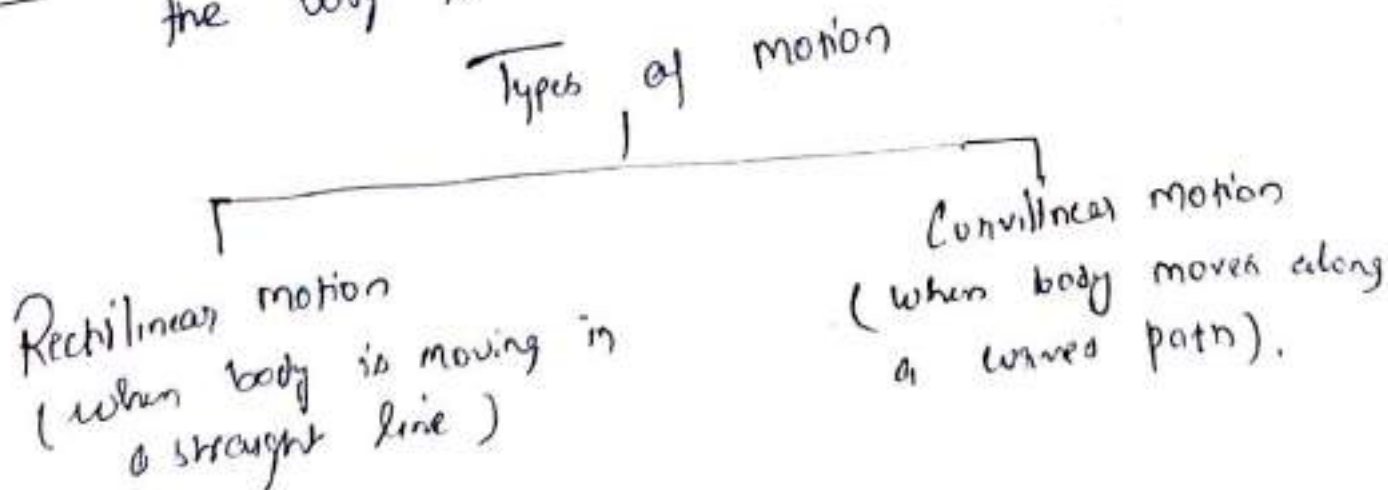 the
Types of motion
Rectilinear motion
(when body is moving in
a straight line)
Curvilinear motion
(when body moves along
a curved path).